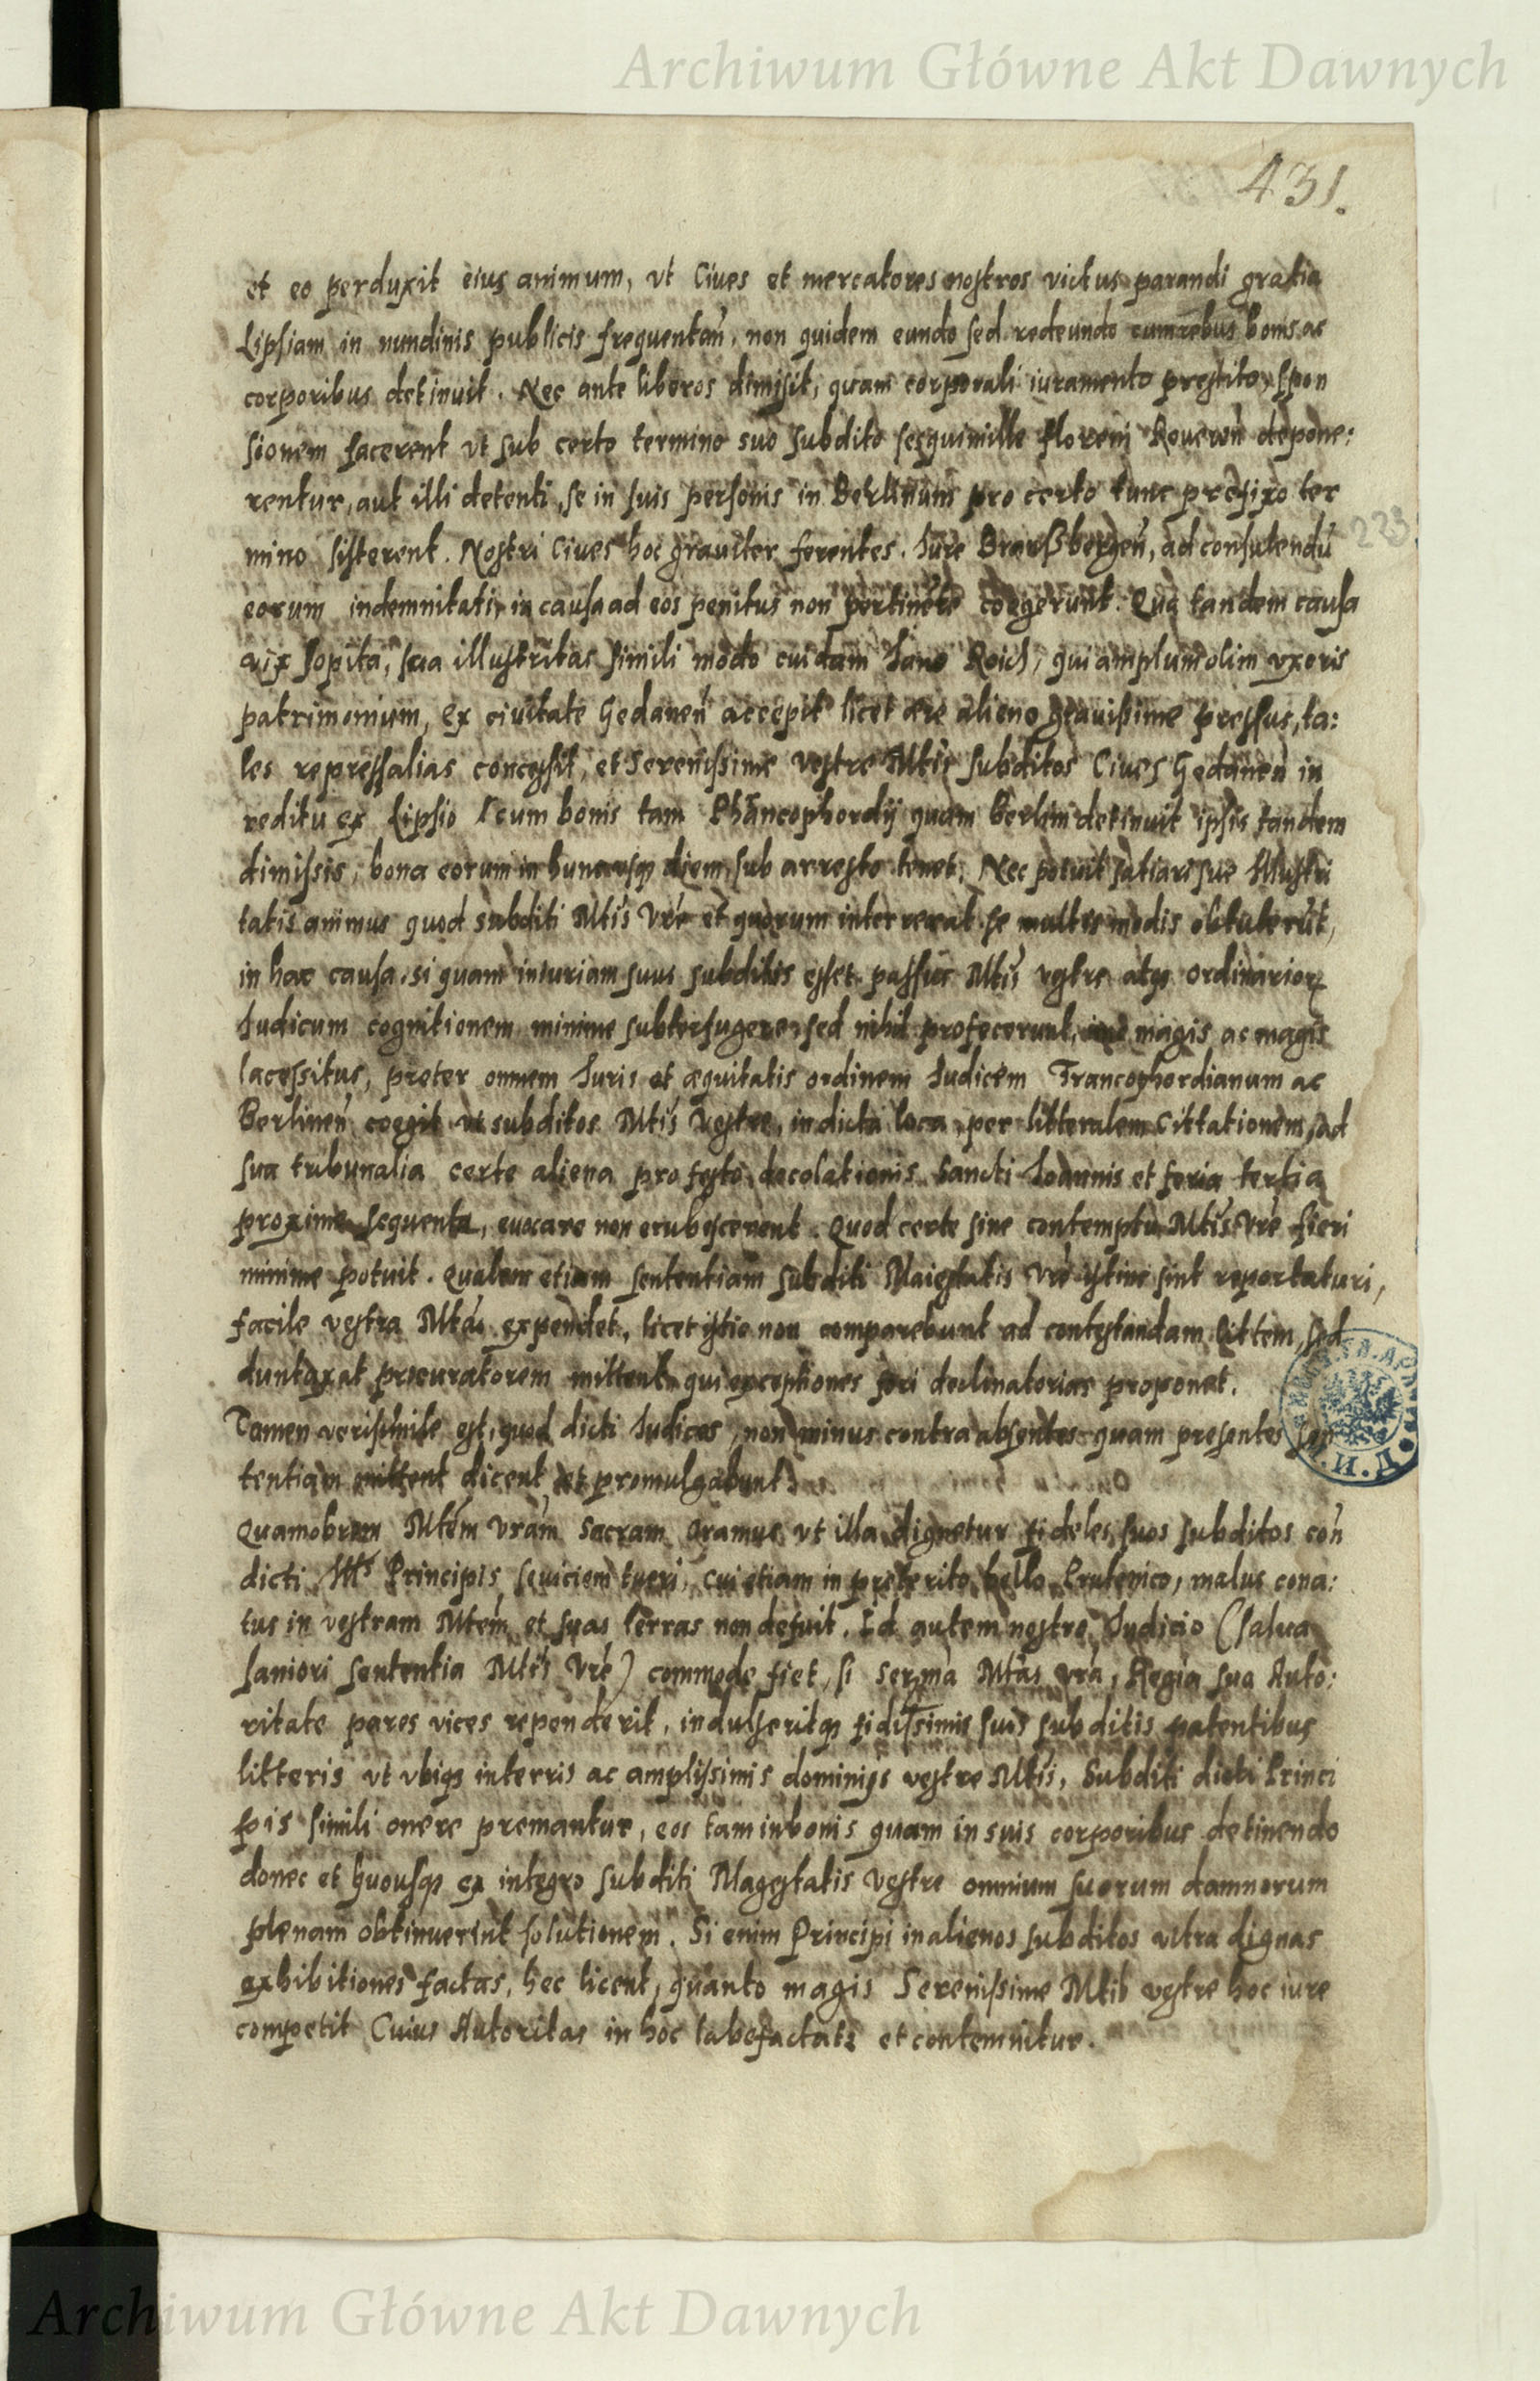 Archiwum Główne Akt Dawnych
431.
et eo perduxit eius animum, vt Ciues et mercatores nostros victus parandi gratia
Lipsiam in nundinis publicis frequentañ, non quidem eundo sed redeundo cum rebus bonis ac
corporibus detinuit. Nec ante liberos dimisit, quam corporali iuramento prestito, spon
sionem facerent vt sub certo termino suo subdito sesquimille floreni Reneñ depone:
rentur, aut illi detenti, se in suis personis in Berlinum pro certo tunc prefixo ter
mino sisterent. Nostri Ciues hoc grauiter ferentes. Iure Brarßbergeñ, ad consulendū
223.
eorum indemnitati, in causa ad eos penitus non pertinēte coegerunt. Qua tandem causa
vix sopita, sua illustritas simili modo cuidam Iano Reich, qui amplum olim vxoris
patrimonium, ex ciuitate Gedaneñ accepit licet ære alieno grauissime pressus, ta:
les repressalias concessit, et Serenissime vestre Mtis subditos Ciues Gedaneñ in
reditu ex Lipsio cum bonis tam Phrancophordij quam Berlini detinuit ipsis tandem
dimissis, bona eorum in hunc usq3 diem sub arresto tenet, Nec potuit satiari sue Illustri
tatis animus quod subditi Mtis Vrē et quorum intererat se multis modis obtulerūt,
in hac causa, si quam iniuriam suus subditus esset passus Mtis vestre atq3 ordinarior
Iudicum cognitionem minime subterfugere, sed nihil profecerunt, imo magis ac magis
lacessitus, preter omnem Iuris et æquitatis ordinem Iudicem Francophordianum ac
Berlineñ coegit vt subditos Mtis Vestre, in dicta loca, per litteralem Cittationem, ad
sua tribunalia certe aliena pro festo decolationis Sancti Ioannis et feria tertia
proxime sequenta, euocare non erubescerent. Quod certe sine contemptu Mtis Vrē fieri
minime potuit. Qualem etiam sententiam subditi Maiestatis Vrē istinc sint reportaturi,
facile vestra Mtas expendet, licet istic non comparebunt ad contestandam Littem, sed
duntaxat procuratorem mittent qui exceptiones fori declinatorias proponet.
Tamen verisimile est, quod dicti Iudices, non minus contra absentes quam presentes sen
tentiam mittent dicent et promulgabunt.
Quamobrem Mtem Vram Sacram oramus, vt illa dignetur fideles suos subditos coñ
dicti Illi Principis seuiciem tueri, cui etiam in preterito bello Prutenico, malus cona:
tus in vestram Mtem et suas terras non defuit. Id autem nostro Iudicio (salua
saniori sententia Mtis Vrē) commode fiet, si Serma Mtas vra, Regia sua Auto:
ritate pares vices rependerit, indulseritq3 fidissimis suis subditis patentibus
litteris vt vbiq3 in terris ac amplissimis dominijs vestre Mtis, Subditi dicti Princi
pis simili onere premantur, eos tam in bonis quam in suis corporibus detinendo
donec et quousq3 ex integro subditi Magestatis Vestre omnium suorum damnorum
plenam obtinuerint solutionem. Si enim Principi in alienos subditos vltra dignas
exhibitiones factas, hec licent, quanto magis Serenissime Mtib vestre hoc iure
competit Cuius Autoritas in hoc labefactata et contemnitur.
Archiwum Główne Akt Dawnych